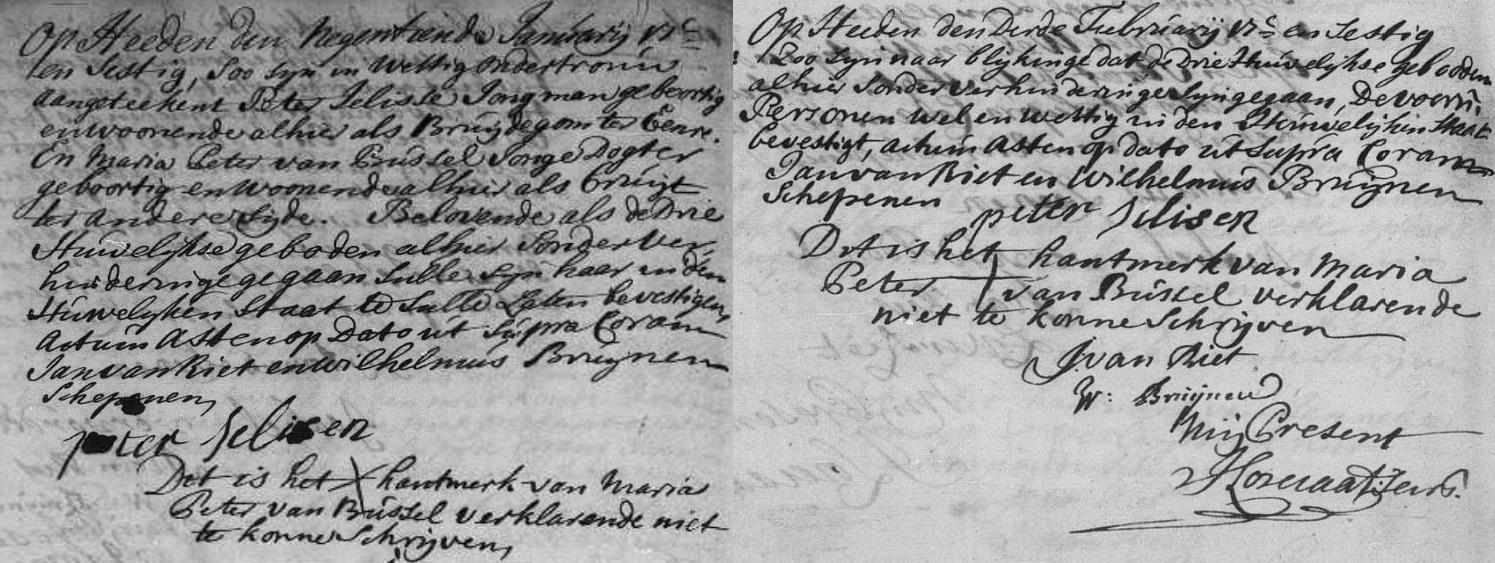 Op Heeden den Negentiende Januarij 17C
en Sestig, Soo syn in Wettig ondertrouw
aangeteekent Peter Jelisse Jongman geboortig
en woonende alhier als Bruydegom ter Eenre.
En Maria Peter van Bussel Jonge Dogter
geboortig en Woonende alhier als bruyt
ter andere Syde. Belovende als de Drie
Huwelykse geboden alhier Sonder ver
hinderinge gegaan Sulle syn haar in den
Huwelyken Staat te Sulle Laten bevestigen,
Actum Asten op Dato ut Supra Coram
Jan van Riet en Wilhelmus Bruynen
Schepenen,
peter Jelisen
Dit is het X hantmerk van Maria
Peter van Bussel verklarende niet
te konne Schrijven,
Op Heeden den Derde Februarij 17C en Sestig
Soo syn naar blykinge dat de Drie Huwelykse gebooden
alhier Sonder verhinderinge syn gegaan, De voorn.
Personen wel en wettig in den Huwelyken Staat
bevestigt, actum Asten op dato ut Supra Coram
Jan van Riet en Wilhelmus Bruynen
Schepenen
peter Jelisen
Dit is het hantmerk van Maria
Peter van Bussel verklarende
niet te konne Schrijven
J. van Riet
W: Bruynen
Mij Present